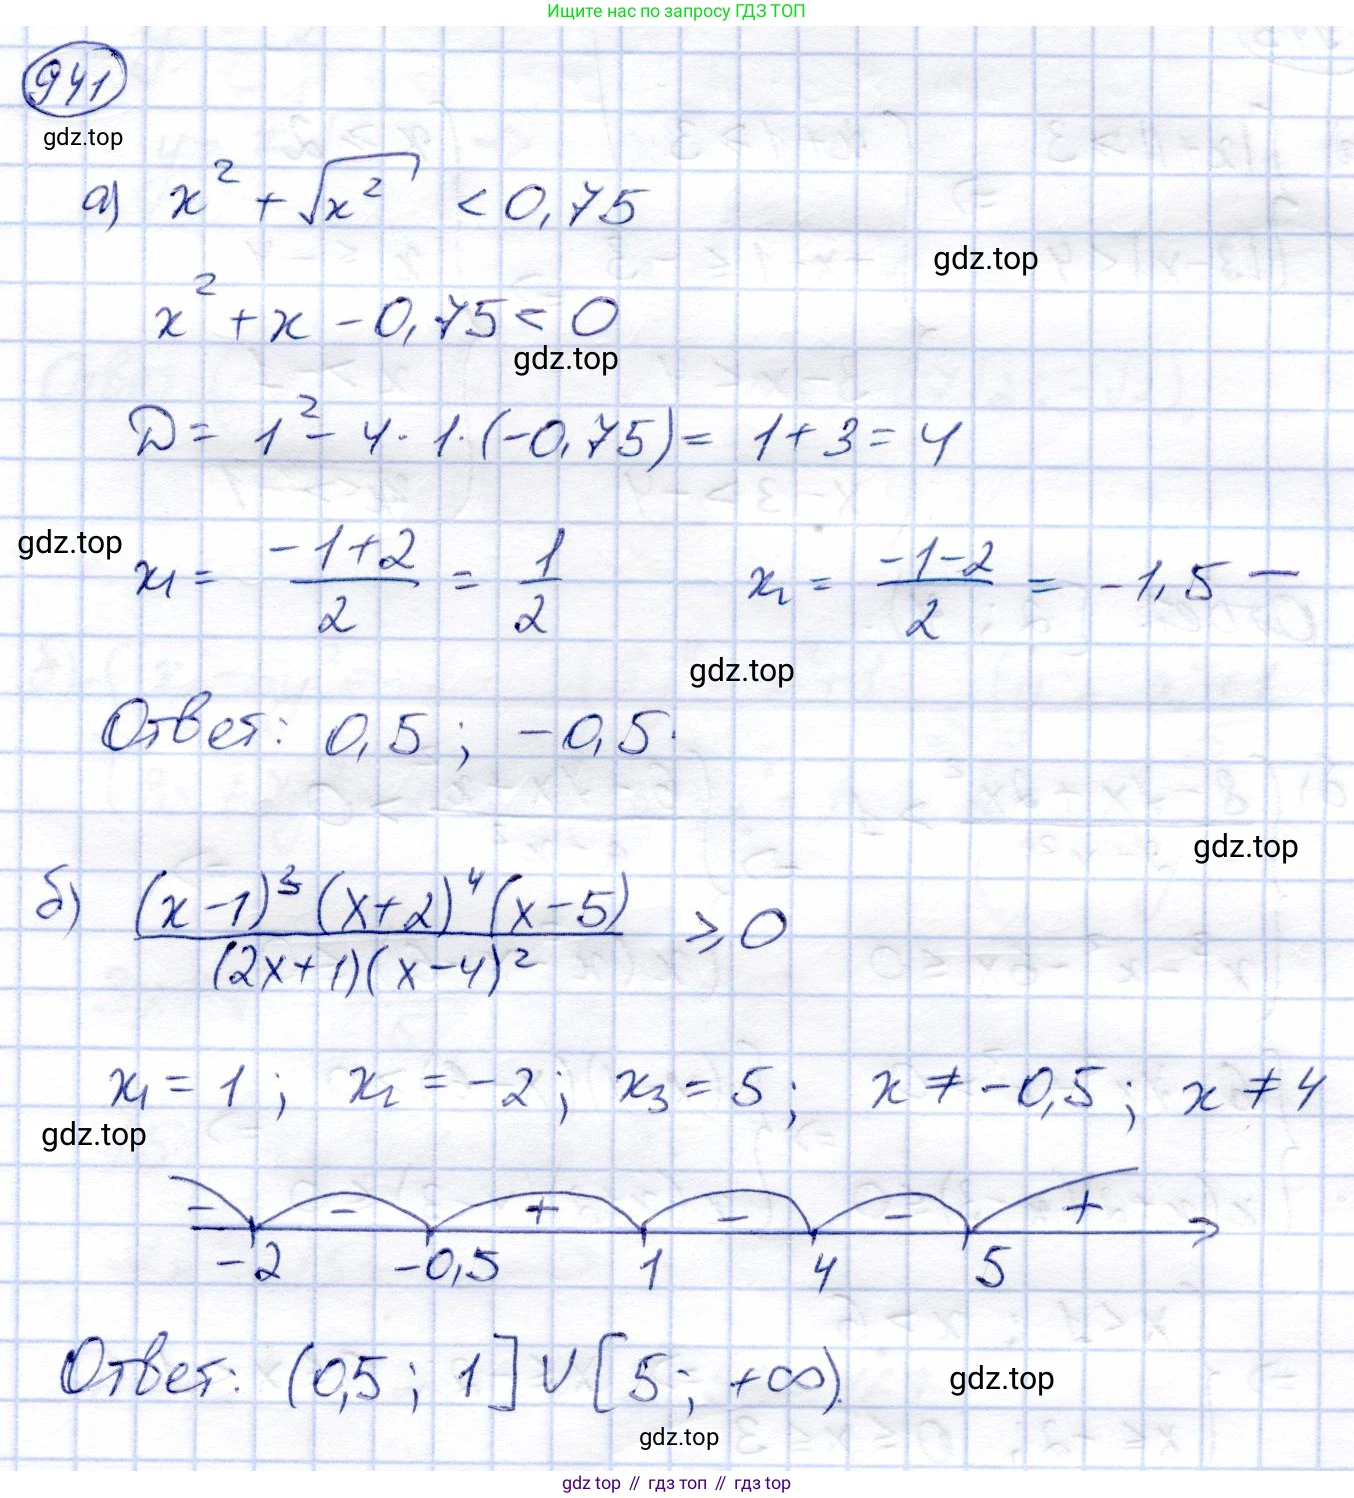 Ищите нас по запросу ГДЗ ТОП
941
gdz.top
а) x² + √x² < 0,75
gdz.top
x² + x - 0,75 < 0
gdz.top
D = 1² - 4 · 1 · (-0,75) = 1 + 3 = 4
gdz.top
x₁ = (-1+2)/2 = 1/2    x₂ = (-1-2)/2 = -1,5 —
gdz.top
Ответ: 0,5 ; -0,5.
gdz.top
б) (x-1)³(x+2)⁴(x-5)/(2x+1)(x-4)² ⩾ 0
x₁ = 1 ; x₂ = -2; x₃ = 5; x ≠ -0,5 ; x ≠ 4
gdz.top
- - + - - +
-2 -0,5 1 4 5
Ответ: (0,5 ; 1] ∪ [5 ; +∞).
gdz.top
gdz.top
gdz top // гдз топ // гдз top